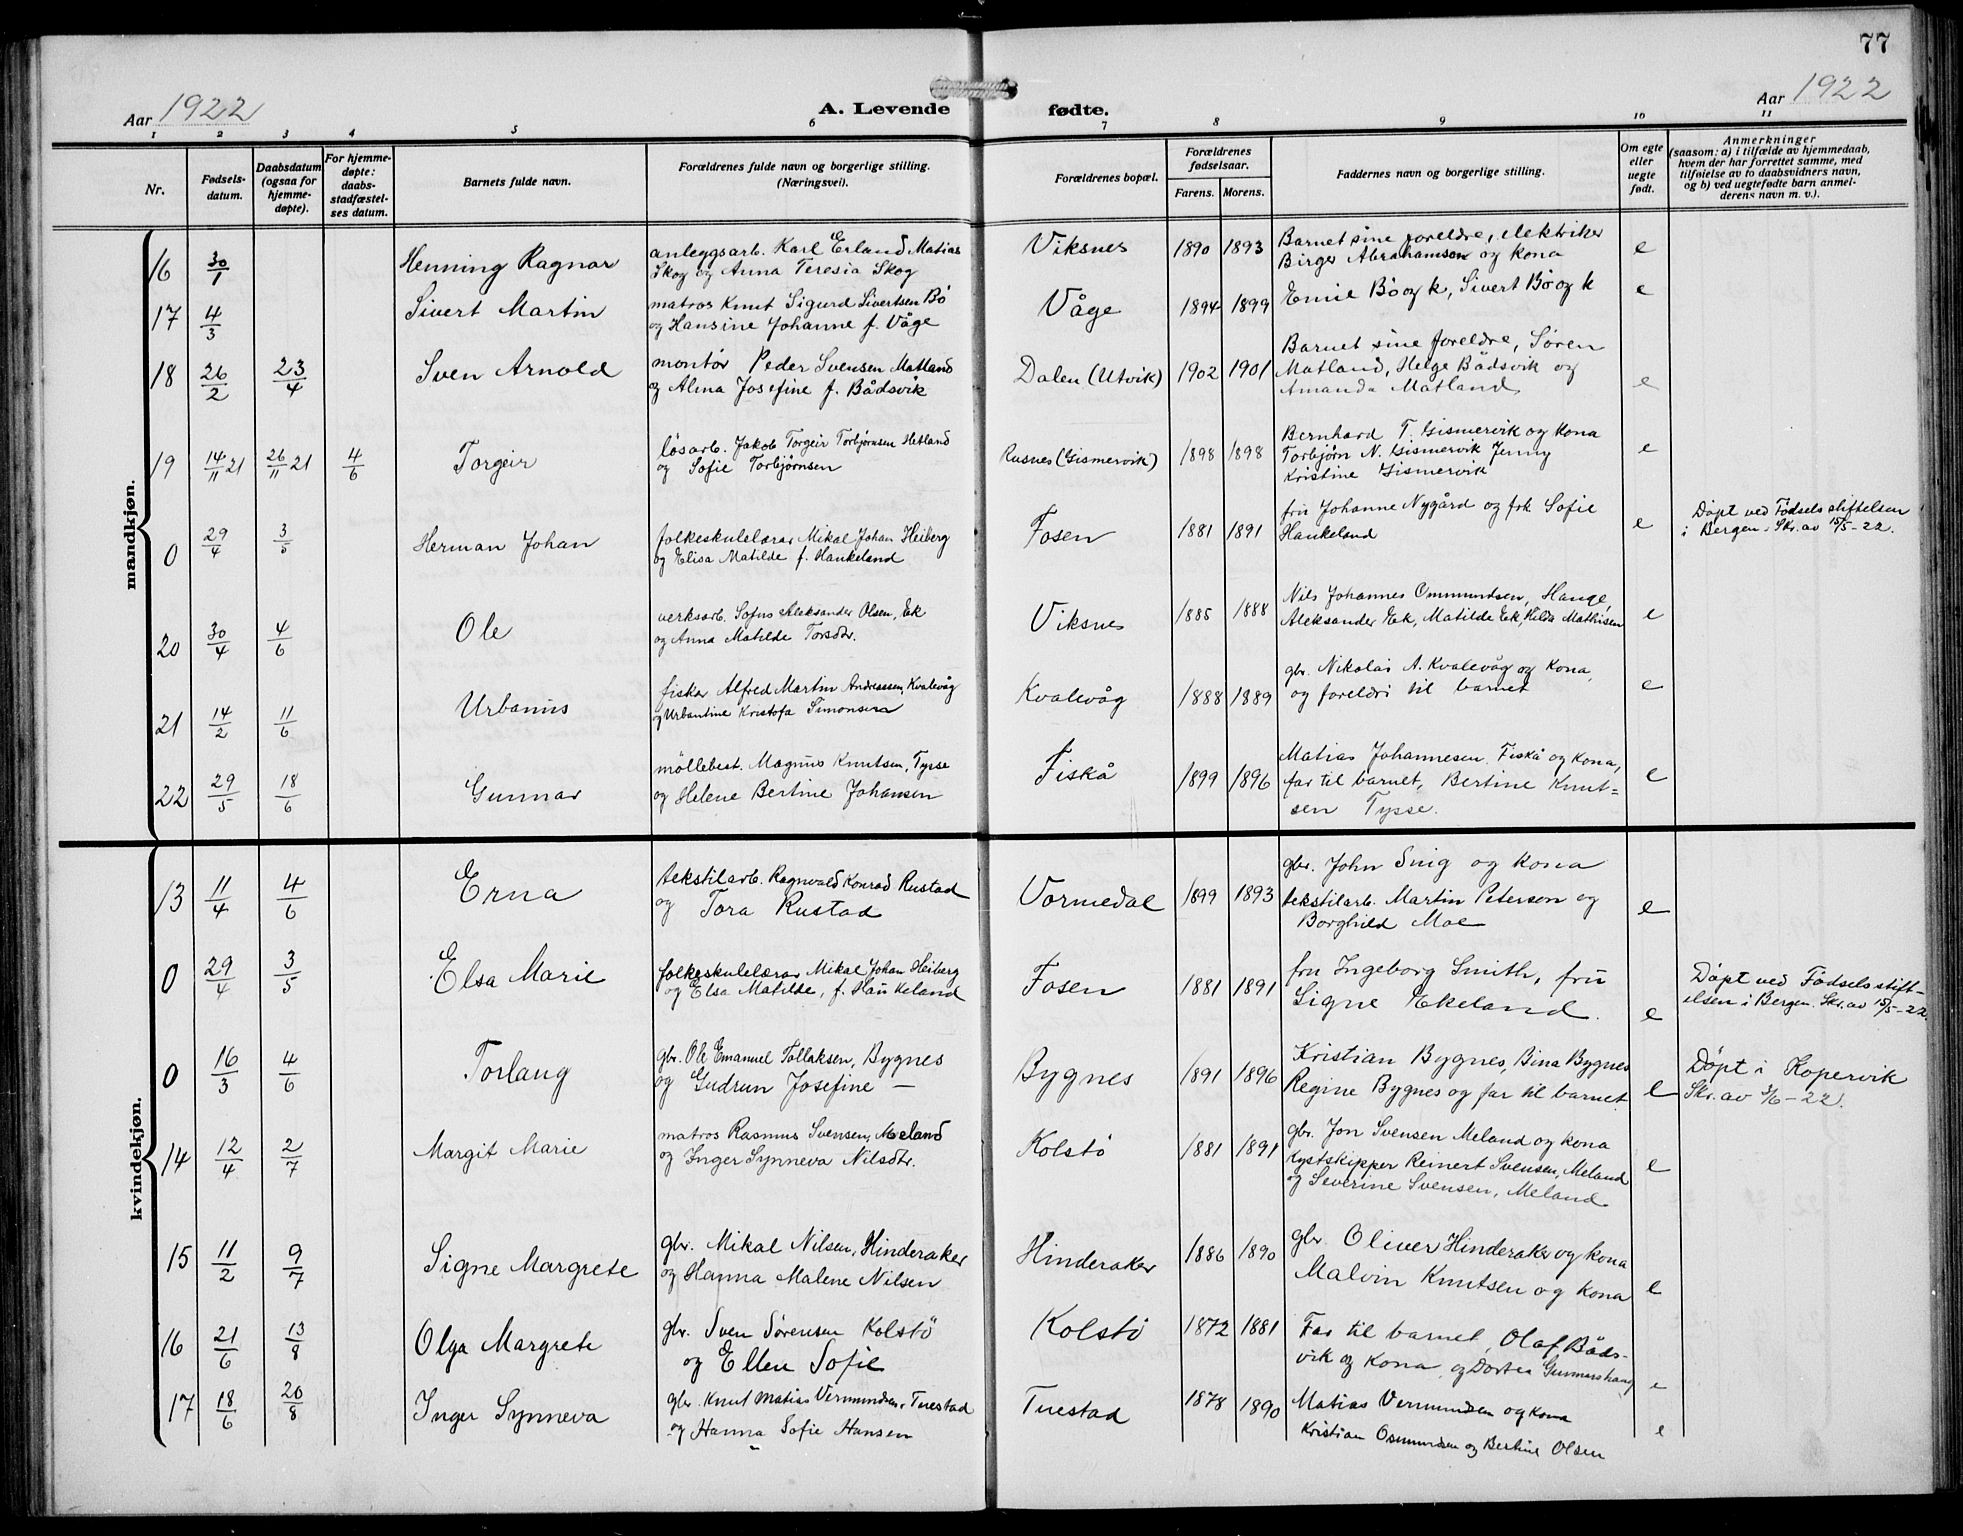 77
Aar 1922
A. Levende fødte.
Aar 1922
1 2 3 4 5 6 7 8 9 10 11
Nr.
Fødsels-
datum.
Daabsdatum
(ogsaa for
hjemme-
døpte).
For hjemme-
døpte:
daabs-
stadfæstel-
ses datum.
Barnets fulde navn.
Forældrenes fulde navn og borgerlige stilling.
(Næringsvei).
Forældrenes bopæl.
Forældrenes
fødselsaar.
Farens. Morens.
Faddernes navn og borgerlige stilling.
Om egte
eller
uegte
født.
Anmerkninger
(saasom: a) i tilfælde av hjemmedaab,
hvem der har forrettet samme, med
tilføielse av to daabsvidners navn,
og b) ved uegtefødte barn anmel-
derens navn m. v.).
mandkjøn.
16 30/1 Henning Ragnar
anleggsarb. Karl Erland Matias
Skog og Anna Teresia Skog
Viksnes 1890 1893
Barnet sine foreldre, elektriker
Birger Abrahamson og kona
e
17 4/3 Sivert Martin
matros Knut Sigurd Sivertsen Bö
og Hansine Johanne f. Våge
Våge 1894 1899
Emil Bö og k, Sivert Bö og k
e
18 26/2 23/4 Sven Arnold
montör Peder Svensen Matland
og Alma Josefine f. Bådsvik
Dalen (Utvik) 1902 1901
Barnet sine foreldre, Sören
Matland, Helge Bådsvik og
Amanda Matland
e
19 14/11 21 26/11 21 4/6 Torgeir
lösarb. Jakob Torgeir Torbjörnsen Hetland
og Sofie Torbjörnsen
Rusnes (Gismervik) 1898 1898
Bernhard T. Gismervik og kona
Torbjörn N. Gismervik Jenny
Kristine Gismervik
e
0 29/4 3/5 Herman Johan
folkeskulelærar Mikal Johan Heiberg
og Elisa Matilde f. Haukeland
Fosen 1881 1891
fru Johanne Nygård og frk Sofie
Haukeland
e
Döpt ved Födselsstiftelsen
i Bergen. Skr. av 15/5-22.
20 30/4 4/6 Ole
verksarb. Sofus Aleksander Olsen, Ek
og Anna Matilde Torsdtr.
Viksnes 1885 1888
Nils Johannes Ommundsen, Hauge,
Aleksander Ek, Matilde Ek, Hilda Mathisen
e
21 14/2 11/6 Urbanus
fiskar Alfred Martin Andreassen, Kvalevåg
og Urbantine Kristofa Simonsen
Kvalevåg 1888 1889
gbr. Nikolai A. Kvalevåg og kona,
og foreldri til barnet
e
22 29/5 18/6 Gunnar
möllebest. Magnus Knutsen, Tysse
og Helene Bertine Johansen
Fiskå 1899 1896
Matias Johannesen Fiskå og kona,
far til barnet, Bertine Knut=
sen Tysse.
e
kvindekjøn.
13 11/4 4/6 Erna
tekstilarb. Ragnvald Konrad Rustad
og Tora Rustad
Vormedal 1899 1893
gbr. John Snig og kona
tekstilarb. Martin Peterson og
Borghild Moe
e
0 29/4 3/5 Elsa Marie
folkeskulelærar Mikal Johan Heiberg
og Elsa Matilde, f. Haukeland
Fosen 1881 1891
fru Ingeborg Smith, fru
Signe Ekeland.
e
Döpt ved Födselsstift-
elsen i Bergen. Skr. av 15/5-22.
0 16/3 4/6 Torlaug
gbr. Ole Emanuel Tollaksen, Bygnes
og Gudrun Josefine —
Bygnes 1891 1896
Kristian Bygnes, Bina Bygnes
Regine Bygnes og far til barnet
e
Döpt i Kopervik
Skr. av 3/6-22.
14 12/4 2/7 Margit Marie
matros Rasmus Svensen, Meland
og Inger Synneva Nilsdtr.
Kolstö 1881 1891
gbr. Jon Svensen Meland og kona
Kystskipper Reinert Svensen, Meland
og Severine Svensen, Meland
e
15 11/2 9/7 Signe Margrete
gbr. Mikal Nilsen, Hinderaker
og Hanna Malene Nilsen
Hinderaker 1886 1890
gbr. Oliver Hinderaker og kona
Malvin Knutsen og kona
e
16 21/6 13/8 Olga Margrete
gbr. Sven Sörensen Kolstö
og Ellen Sofie
Kolstö 1872 1881
Far til barnet, Olaf Båds-
vik og kona, og Dortea Gunnarshaug
e
17 18/6 20/8 Inger Synneva
gbr. Knut Matias Vermundsen, Tuestad
og Hanna Sofie Hansen
Tuestad 1878 1890
Matias Vermundsen og kona
Kristian Osmundsen og Bertine Olsen
e